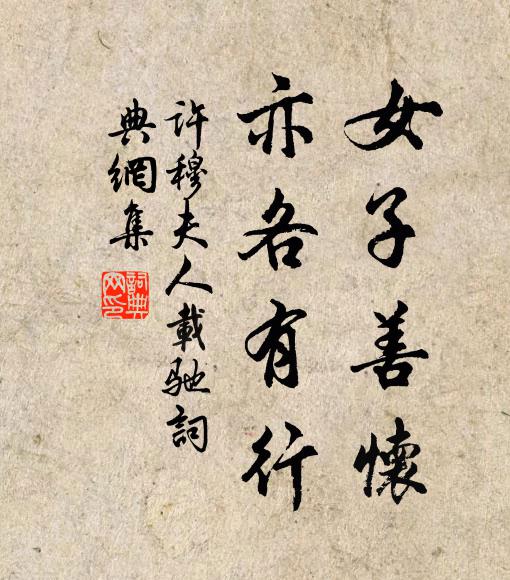 女子善懷
亦各有行
許穆夫人載馳詞
典網集
詞典
网印